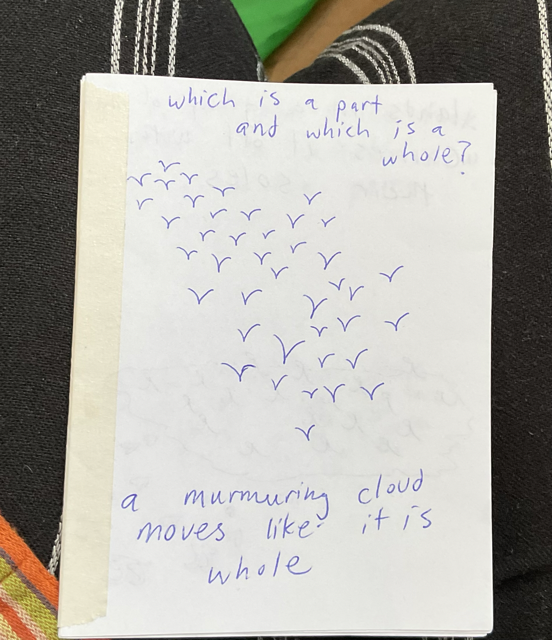 which is a part
and which is a
whole?
a murmuring cloud
moves like it is
whole